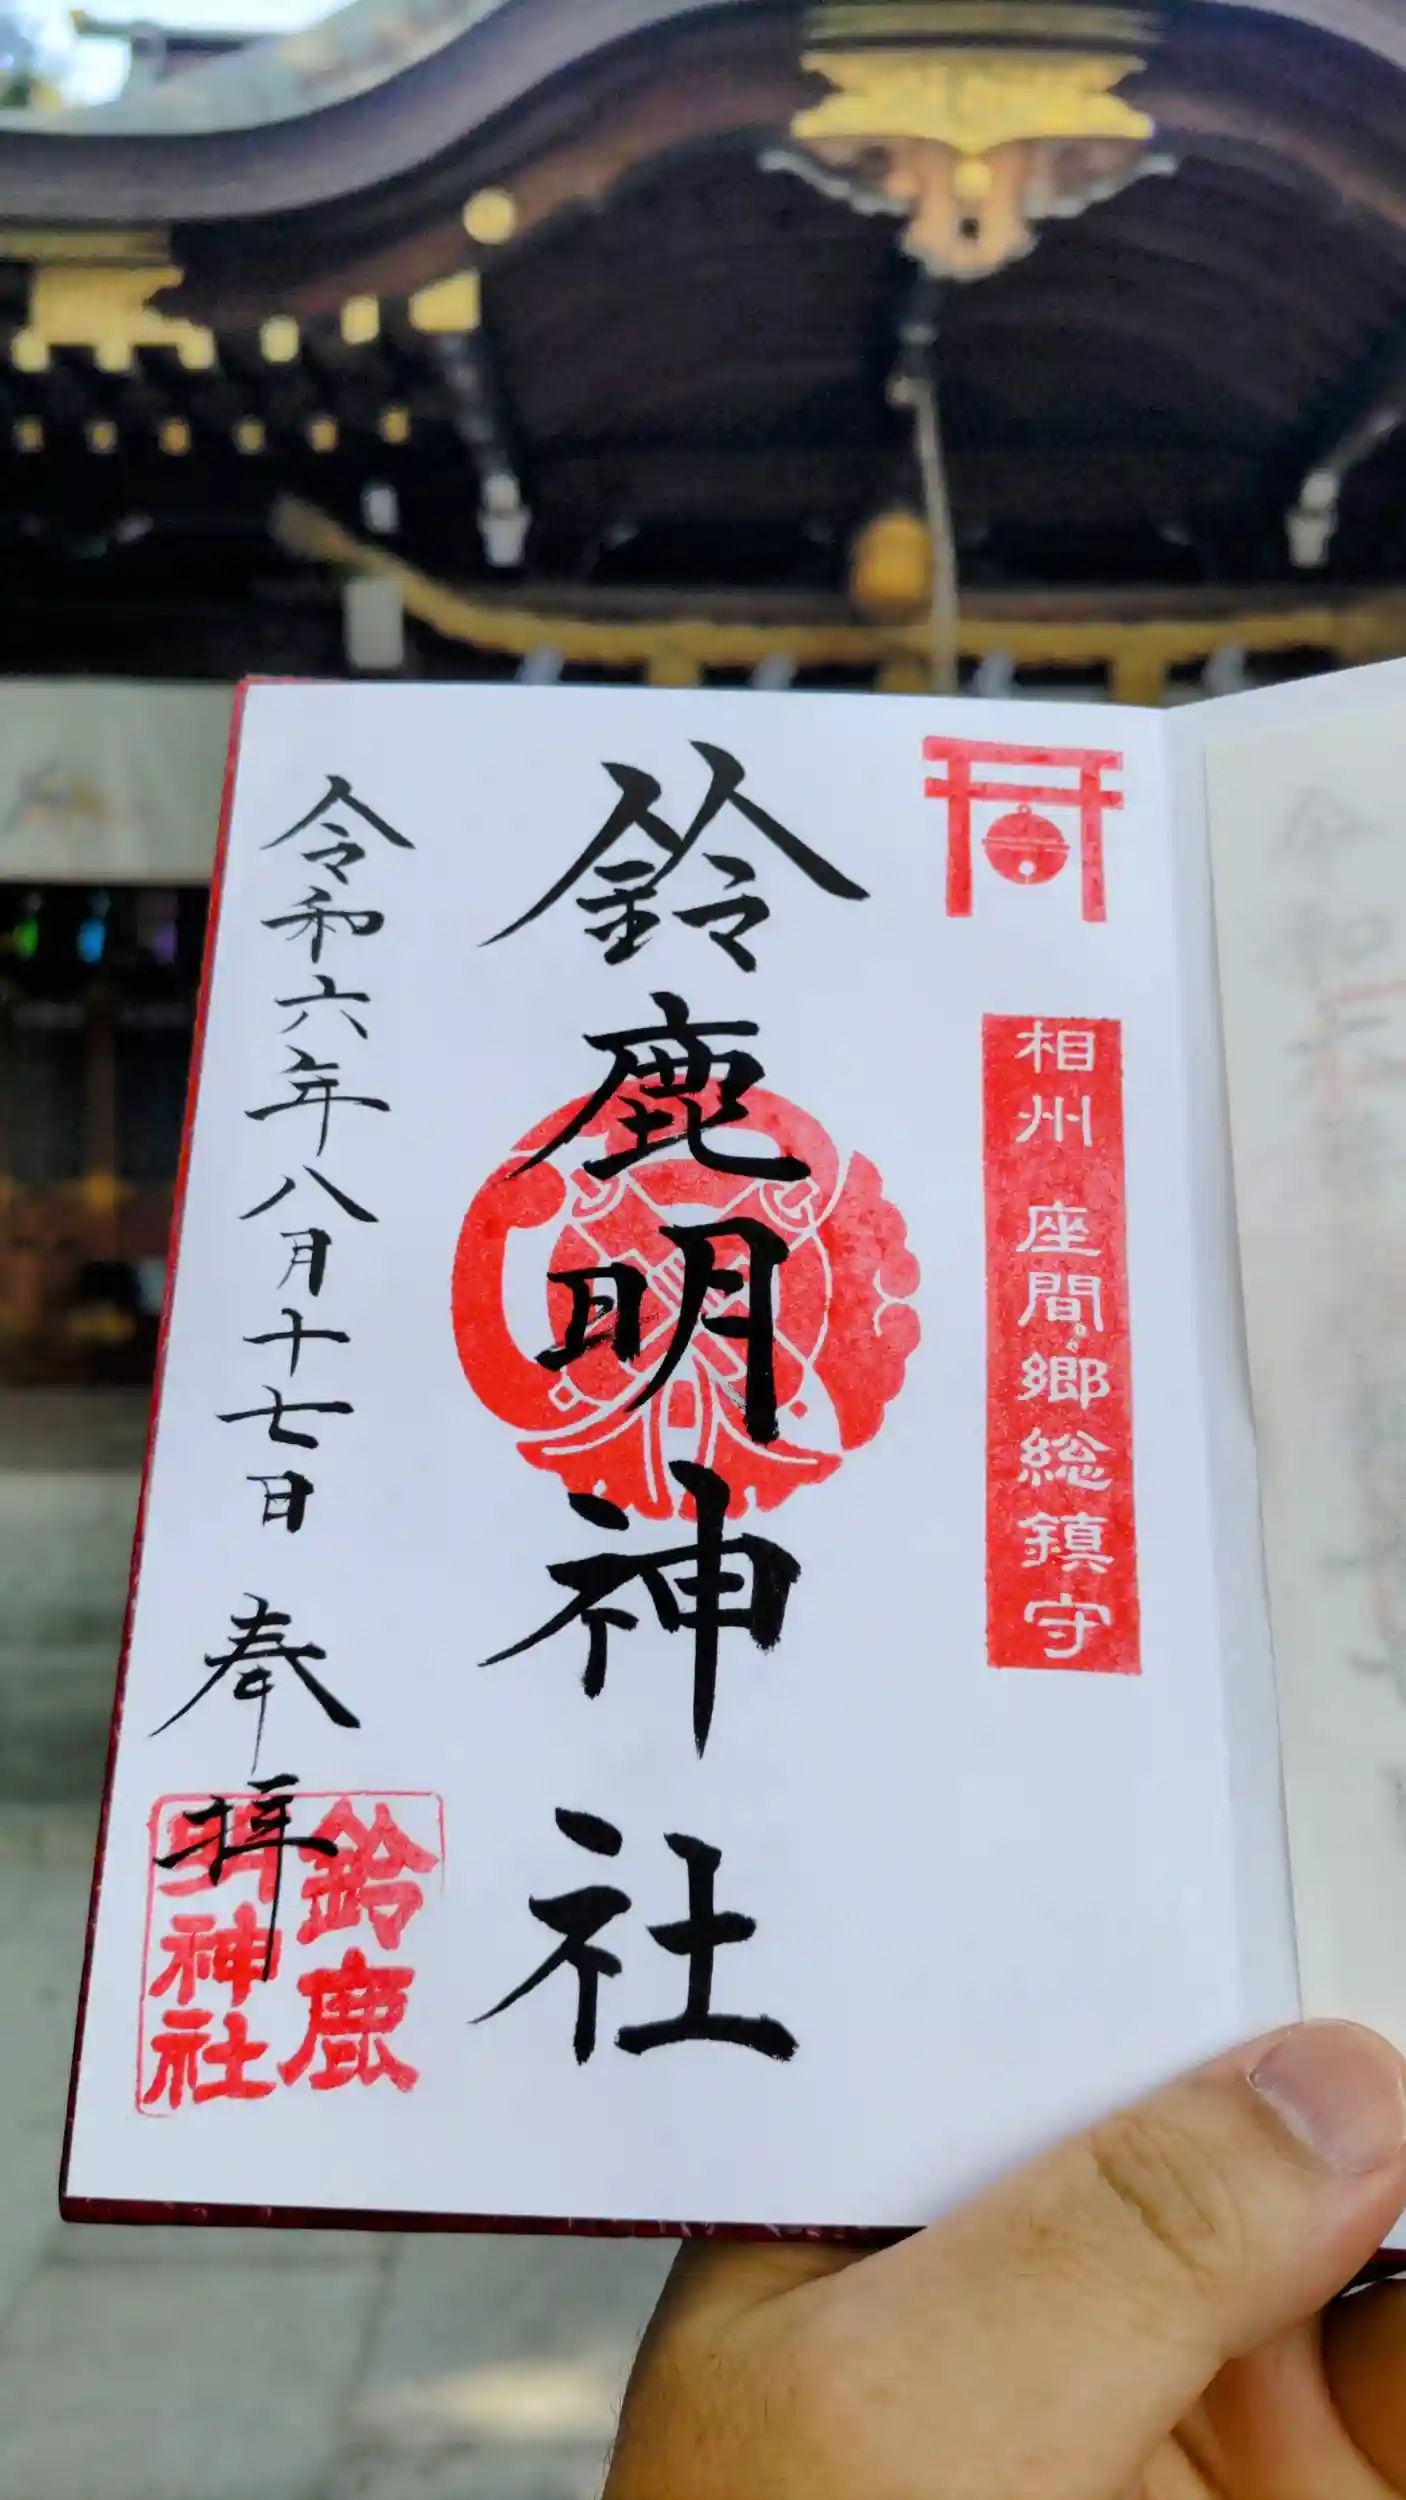 相州 座間の郷総鎮守
鈴鹿明神社
令和六年八月十七日 奉拝
鈴鹿
明神社